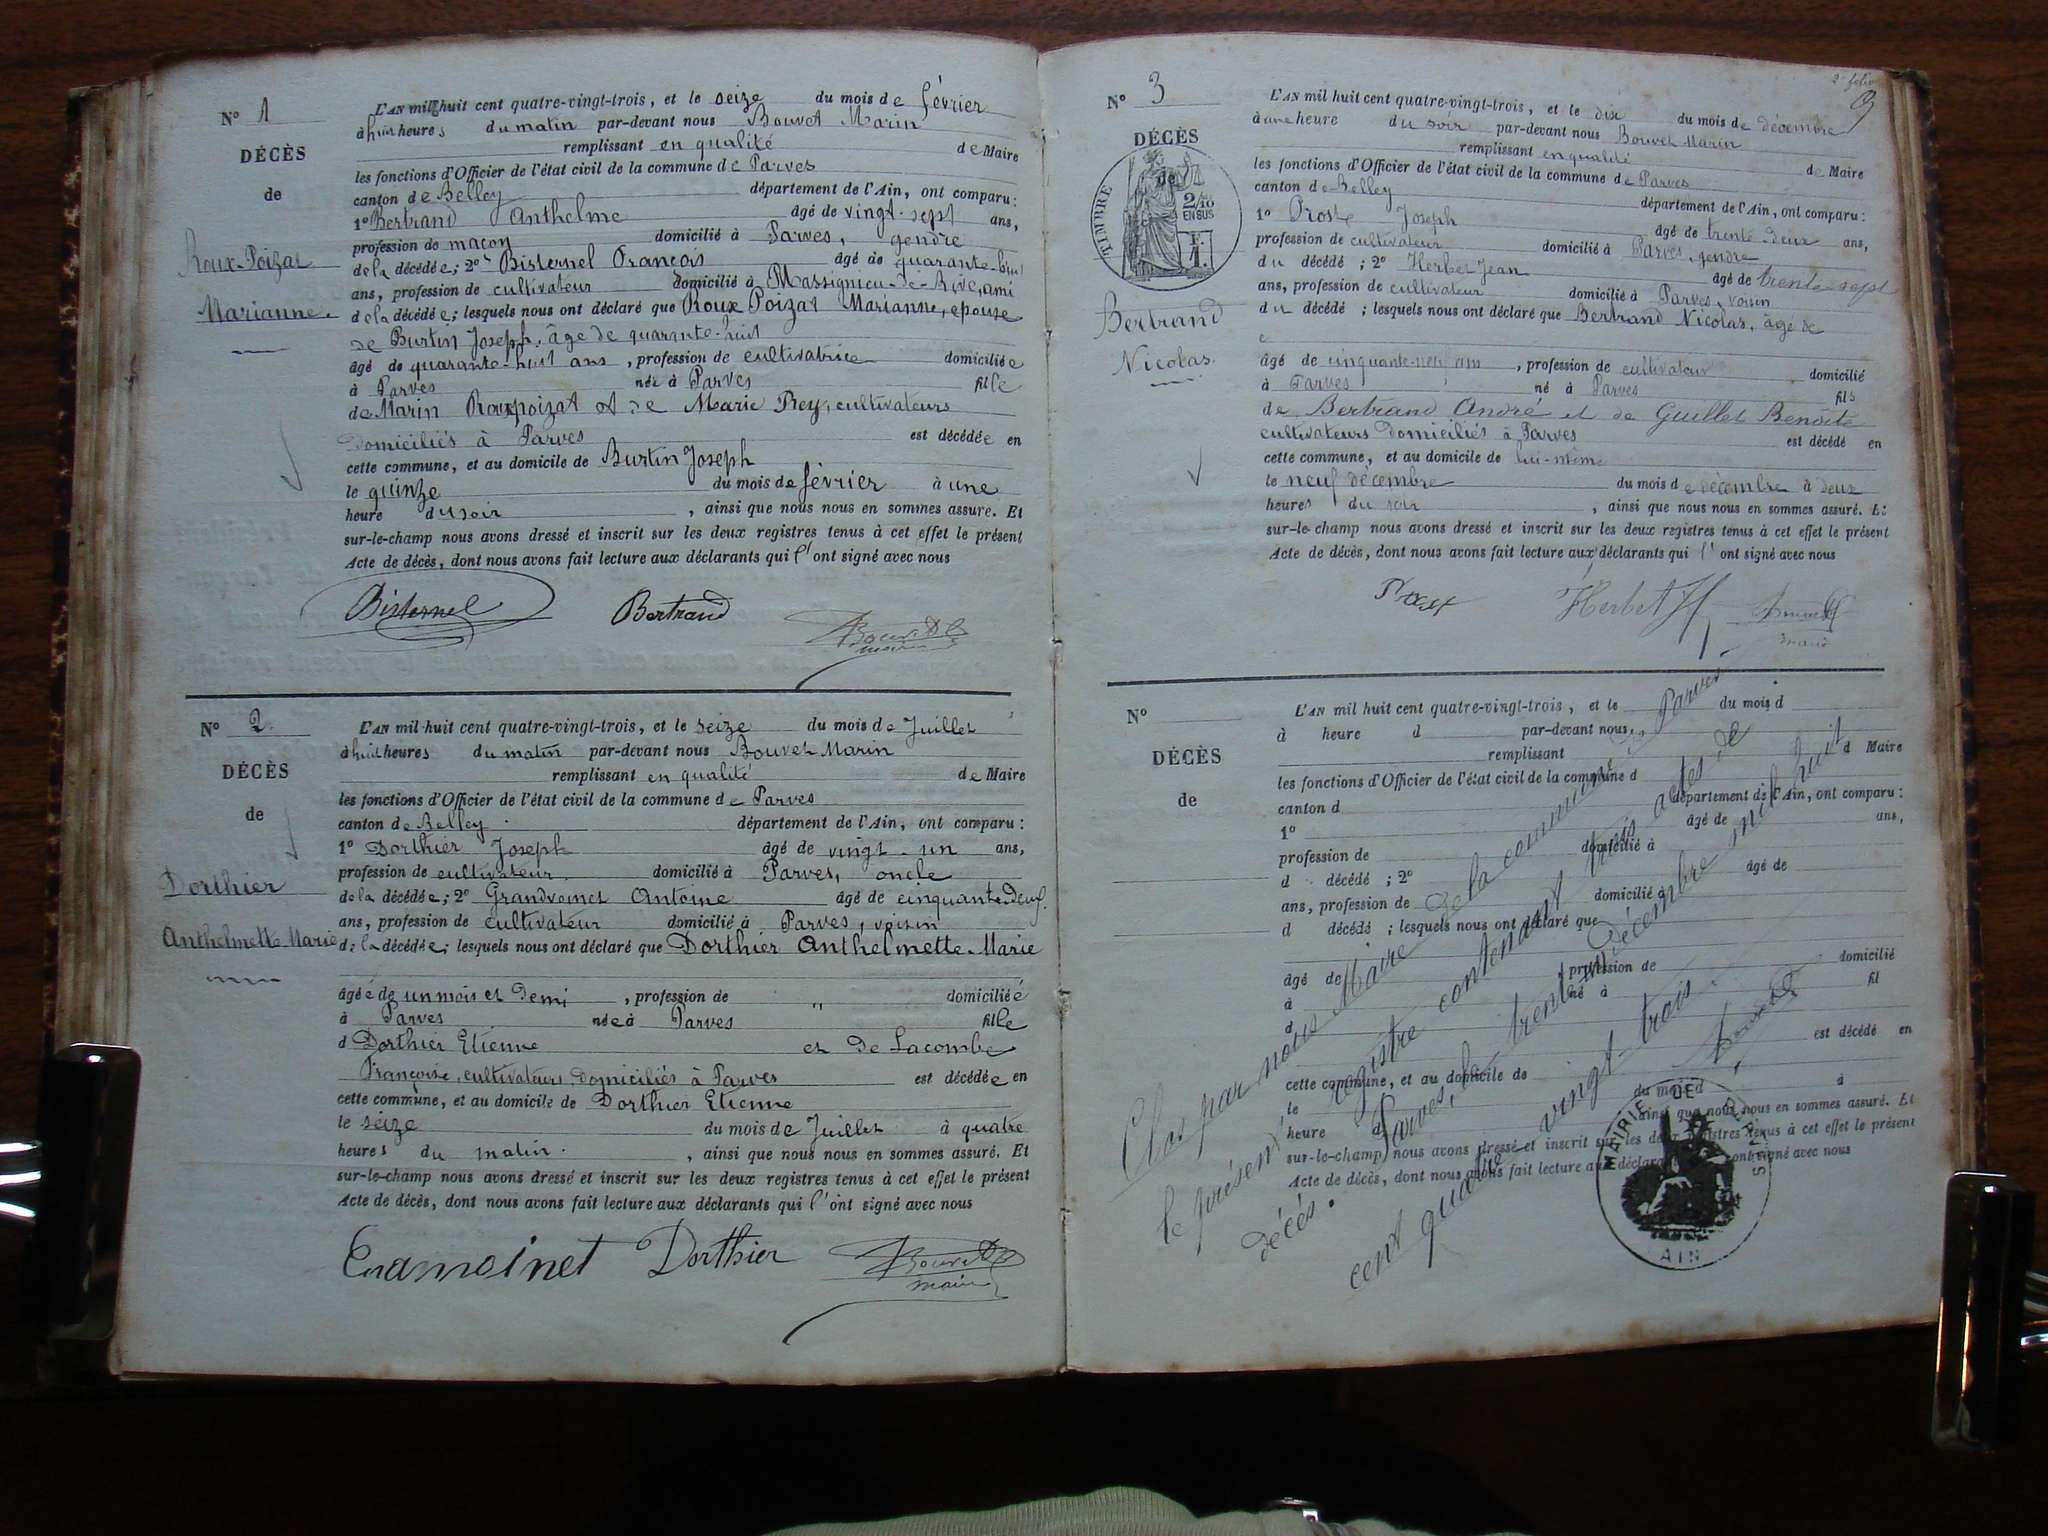 N° 1
DÉCÈS
de
Roux-Poizat
Marianne.
L'AN mil huit cent quatre-vingt-trois, et le seize du mois de février
à huit heures du matin par-devant nous Bouvet Marin
remplissant en qualité de Maire
les fonctions d'Officier de l'état civil de la commune de Parves
canton de Belley département de l'Ain, ont comparu :
1° Bertrand Anthelme âgé de vingt-sept ans,
profession de maçon domicilié à Parves, gendre
de la décédée ; 2° Bisternel François âgé de quarante-huit
ans, profession de cultivateur domicilié à Massignieu-de-Rive, ami
de la décédée ; lesquels nous ont déclaré que Roux Poizat Marianne, épouse
de Burtin Joseph, âge de quarante-huit
âgé de quarante-huit ans, profession de cultivatrice domiciliée
à Parves née à Parves fille
de Marin Rouxpoizat et de Marie Prey, cultivateurs
domiciliés à Parves est décédée en
cette commune, et au domicile de Burtin Joseph
le quinze du mois de février à une
heure du soir, ainsi que nous nous en sommes assuré. Et
sur-le-champ nous avons dressé et inscrit sur les deux registres tenus à cet effet le présent
Acte de décès, dont nous avons fait lecture aux déclarants qui l'ont signé avec nous
Bisternel Bertrand Bouvet
maire
N° 2
DÉCÈS
de
Dorthier
Anthelmette Marie
L'AN mil huit cent quatre-vingt-trois, et le seize du mois de Juillet
à huit heures du matin par-devant nous Bouvet Marin
remplissant en qualité de Maire
les fonctions d'Officier de l'état civil de la commune de Parves
canton de Belley département de l'Ain, ont comparu :
1° Dorthier Joseph âgé de vingt-un ans,
profession de cultivateur domicilié à Parves, oncle
de la décédée ; 2° Grandvoinet Antoine âgé de cinquante-deux
ans, profession de cultivateur domicilié à Parves, voisin
de la décédée ; lesquels nous ont déclaré que Dorthier Anthelmette Marie
âgée de un mois et demi, profession de „ domiciliée
à Parves née à Parves fille
d Dorthier Etienne et de Lacombe
Françoise, cultivateurs domiciliés à Parves est décédée en
cette commune, et au domicile de Dorthier Etienne
le seize du mois de Juillet à quatre
heures du matin, ainsi que nous nous en sommes assuré. Et
sur-le-champ nous avons dressé et inscrit sur les deux registres tenus à cet effet le présent
Acte de décès, dont nous avons fait lecture aux déclarants qui l'ont signé avec nous
Dorthier Bouvet
maire
2e folio
N° 3
DÉCÈS
de
TIMBRE
2/10
EN SUS
Bertrand
Nicolas.
L'AN mil huit cent quatre-vingt-trois, et le dix du mois de décembre
à une heure du soir par-devant nous Bouvet Marin
remplissant en qualité de Maire
les fonctions d'Officier de l'état civil de la commune de Parves
canton de Belley département de l'Ain, ont comparu :
1° Prost Joseph âgé de trente-deux ans,
profession de cultivateur domicilié à Parves, gendre
du décédé ; 2° Herbet Jean âgé de trente-sept
ans, profession de cultivateur domicilié à Parves, voisin
du décédé ; lesquels nous ont déclaré que Bertrand Nicolas, âgé de
âgé de cinquante-neuf ans, profession de cultivateur domicilié
à Parves né à Parves fils
de Bertrand André et de Guillet Benoîte
cultivateurs domiciliés à Parves est décédé en
cette commune, et au domicile de lui-même
le neuf décembre du mois de décembre à deux
heures du soir, ainsi que nous nous en sommes assuré. Et
sur-le-champ nous avons dressé et inscrit sur les deux registres tenus à cet effet le présent
Acte de décès, dont nous avons fait lecture aux déclarants qui l'ont signé avec nous
Prost Herbet Bouvet
maire
N°
DÉCÈS
de
L'AN mil huit cent quatre-vingt-trois, et le du mois d
à heure d par-devant nous
remplissant d Maire
les fonctions d'Officier de l'état civil de la commune d
canton d département de l'Ain, ont comparu :
1° âgé de ans,
profession de domicilié à
d décédé ; 2° âgé de
ans, profession de domicilié à
d décédé ; lesquels nous ont déclaré que
âgé de profession de domicilié
à né à fil
d
est décédé en
cette commune, et au domicile de
le du mois d à
heure d ainsi que nous nous en sommes assuré. Et
sur-le-champ nous avons dressé et inscrit sur les deux registres tenus à cet effet le présent
Acte de décès, dont nous avons fait lecture aux déclarants ont signé avec nous
Clos par nous Maire de la commune de Parves
le présent registre contenant trois actes de
décés.
Parves, le trente un Décembre mil huit
cent quatre vingt-trois.
Bouvet
MAIRIE DE PARVES
AIN